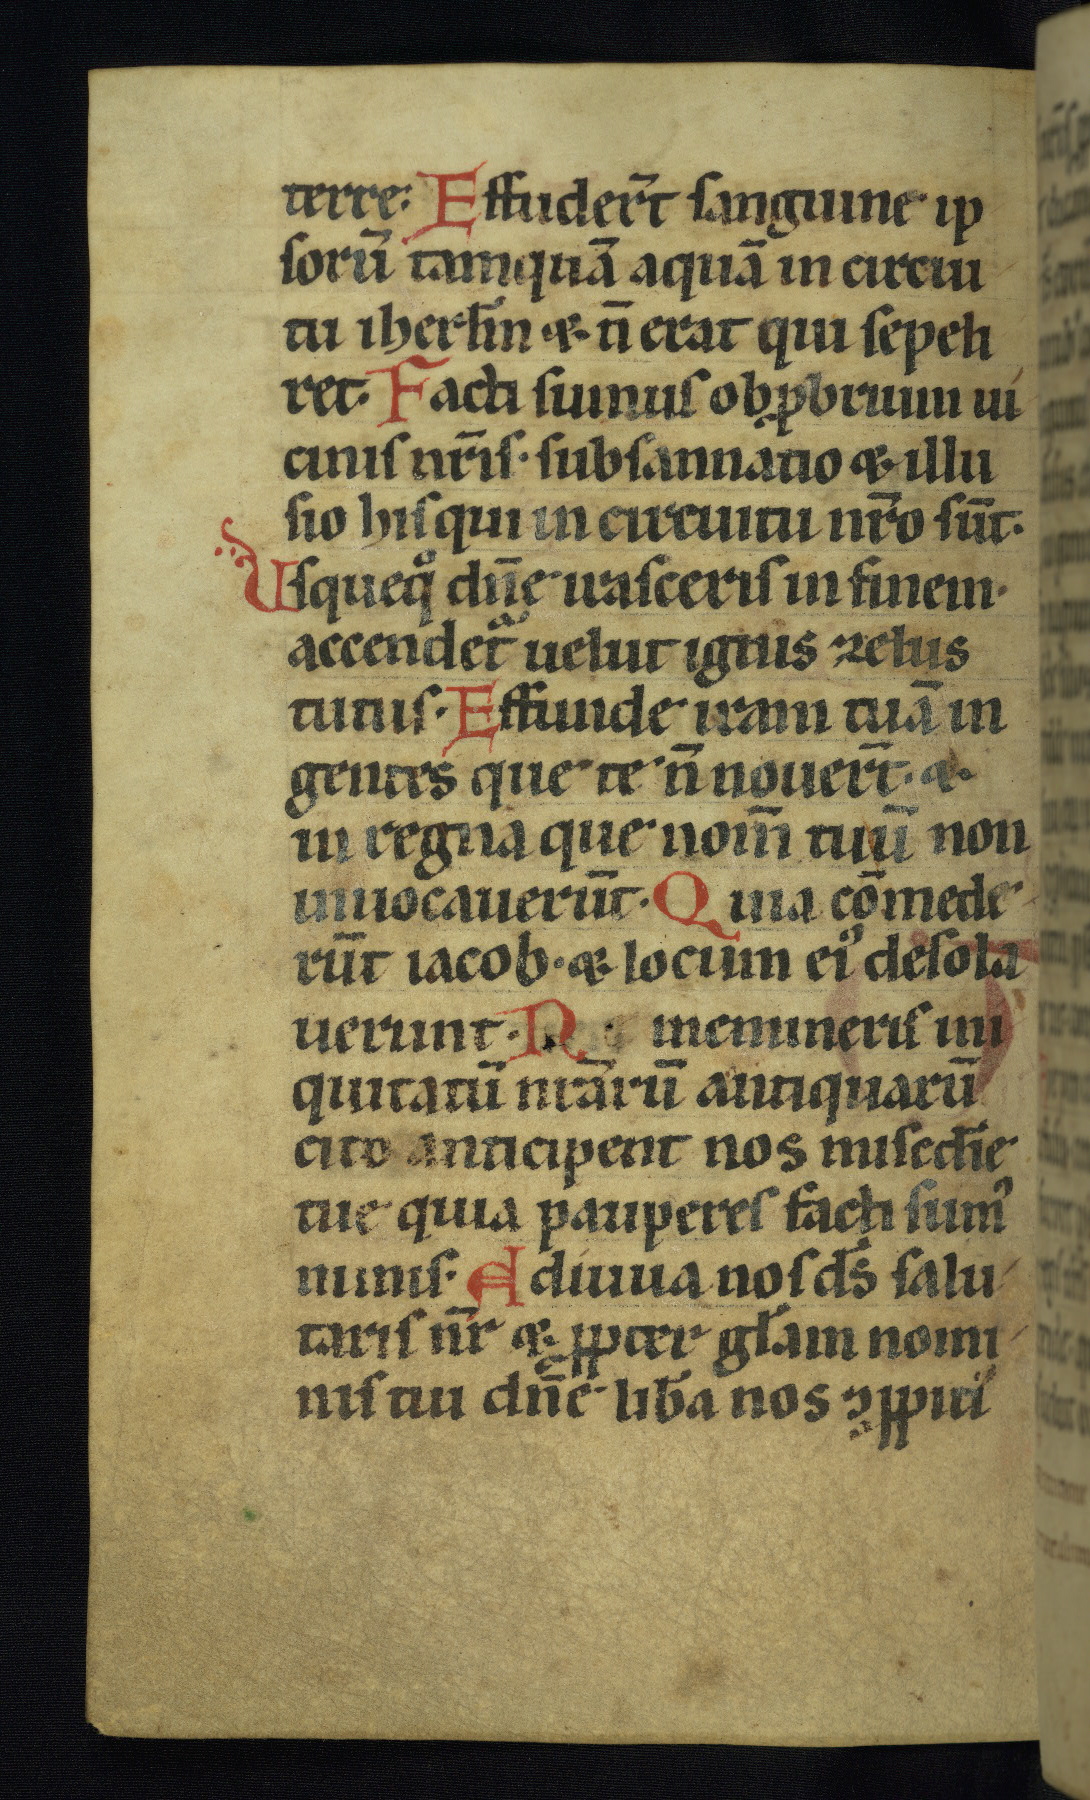 terre. Effuder̄t sanguine ip
sorū tamquā aquā in circui
tu iherl̄m & n̄ erat qui sepeli
ret. Facti sumus obꝓbrium ui
cinis nr̄is. subsannatio & illu
sio his qui in circuitu nr̄o sūt.
Usqueqͦ dn̄e irasceris in finem.
accendet᷑ uelut ignis zelus
tuus. Effunde iram tuā in
gentes que te n̄ nouer̄t. &
in regna que nom̄ tuū non
inuocauerūt. Quia cōmede
rūt iacob. & locum eiꝰ desola
uerunt. Ne memineris ini
quitatū nr̄arū antiquarū
cito anticipent nos misedīe
tue quia pauperes facti sumꝰ
nimis. Adiuua nos ds̄ salu
taris nr̄ & ꝓpter gl̄am nomi
nis tui dn̄e lib̄a nos ⁊ ꝓpiti